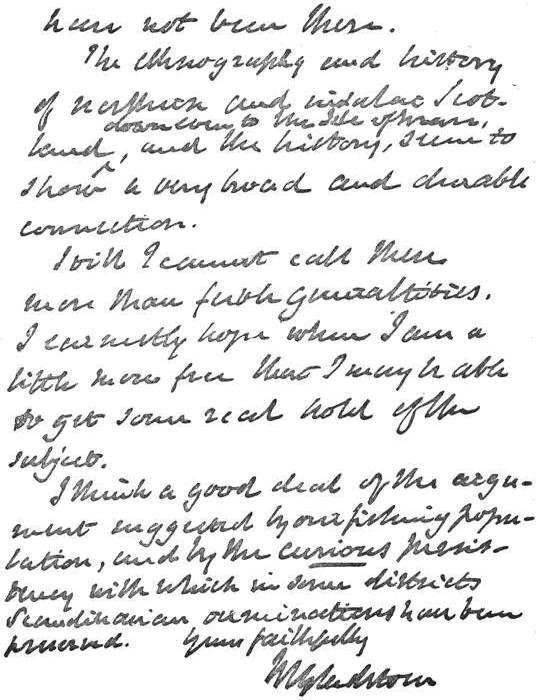 have not been there.
The ethnography and history
of northern and insular Scot-
down even to the Isle of Man,
land, and the history, seem to
show ^ a very broad and durable
connection.
Still I cannot call these
more than feeble generalities.
I earnestly hope when I am a
little more free that I may be able
to get some real hold of the
subject.
I think a good deal of the argu-
ment suggested by our fishing popu-
lation, and by the curious persis-
tency with which in some districts
Scandinavian denominations have been
preserved. Yours faithfully
W E Gladstone